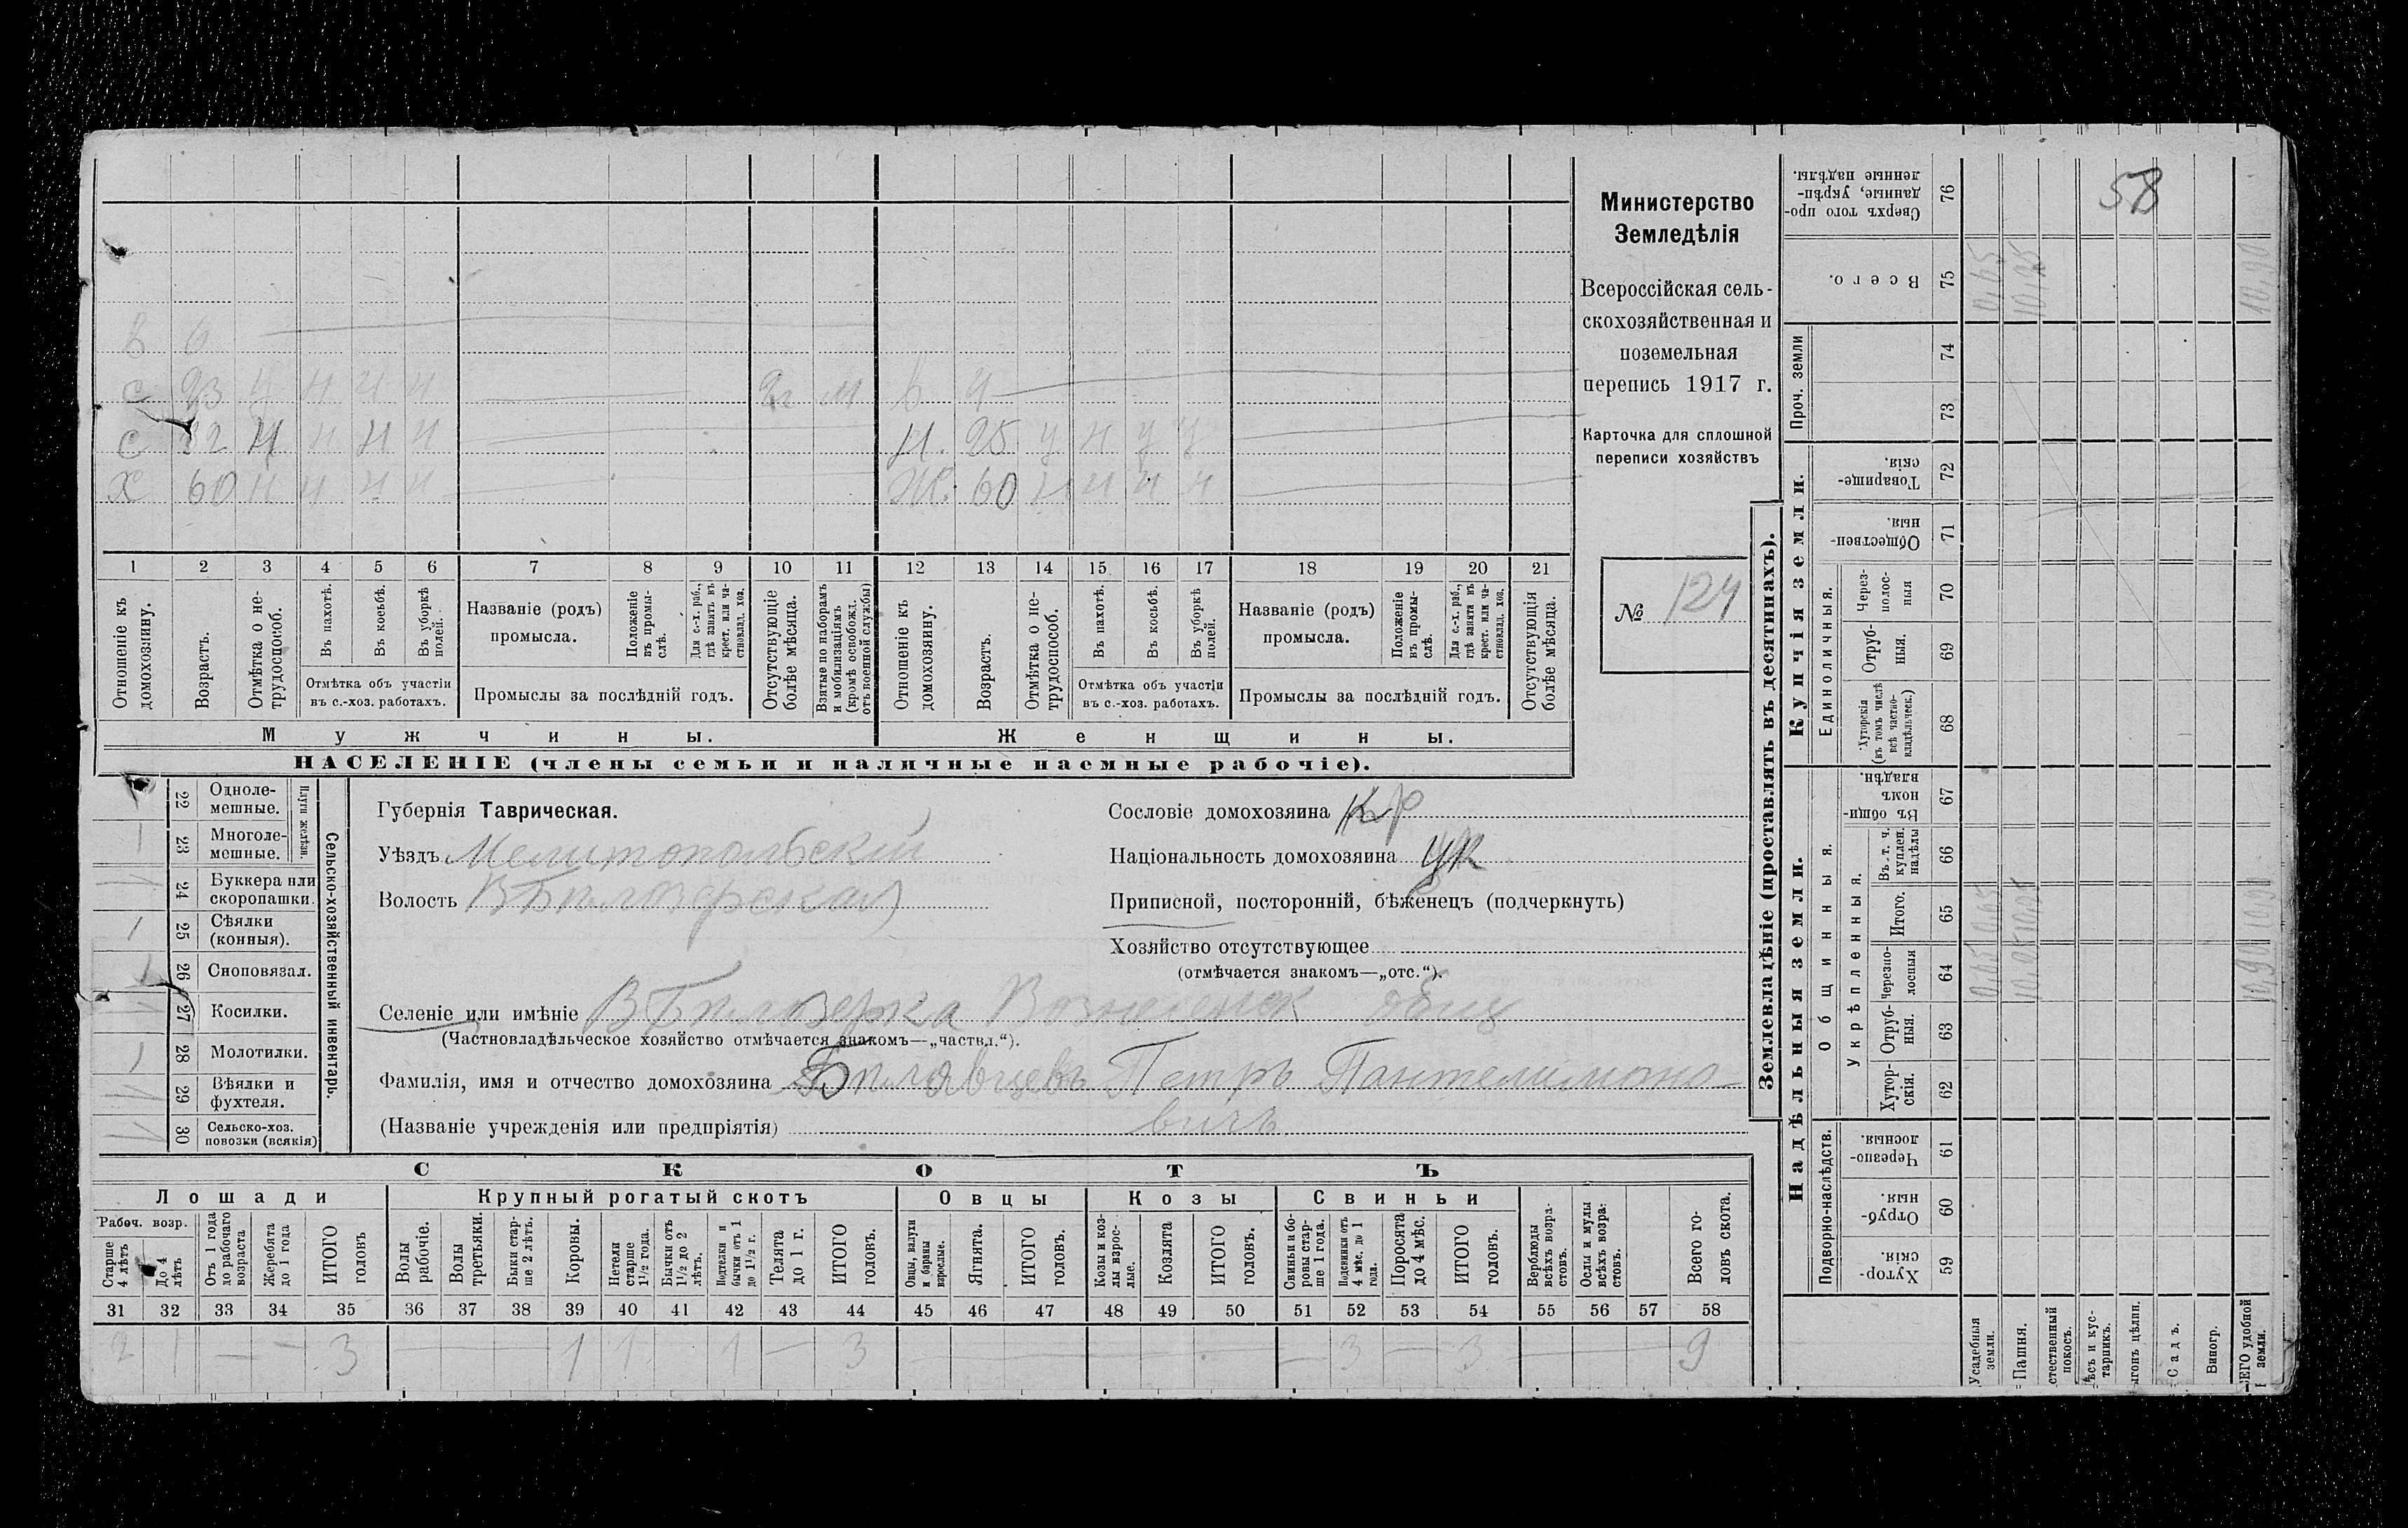 58
Министерство
Земледѣлія
Всероссійская сель-
скохозяйственная и
поземельная
перепись 1917 г.
Карточка для сплошной
переписи хозяйствъ
№ 124
в 6
с 23 н н н н 2г м в 4
с 32 н н н н н. 25 у н у у
х 60 н н н н ж. 60 н н н н
1 2 3 4 5 6 7 8 9 10 11 12 13 14 15 16 17 18 19 20 21
Отношеніе къ домохозяину.
Возрастъ.
Отмѣтка о нетрудоспособ.
Въ пахотѣ.
Въ косьбѣ.
Въ уборкѣ полей.
Отмѣтка объ участіи
въ с.-хоз. работахъ.
Названіе (родъ)
промысла.
Положеніе въ промыслѣ.
Для с.-х. раб., гдѣ занятъ въ крест. или частновлад. хоз.
Промыслы за послѣдній годъ.
Отсутствующіе болѣе мѣсяца.
Взятые по наборамъ и мобилизаціямъ (кромѣ освобожд. отъ военной службы)
Отношеніе къ домохозяину.
Возрастъ.
Отмѣтка о нетрудоспособ.
Въ пахотѣ.
Въ косьбѣ.
Въ уборкѣ полей.
Отмѣтка объ участіи
въ с.-хоз. работахъ.
Названіе (родъ)
промысла.
Положеніе въ промыслѣ.
Для с.-х. раб., гдѣ занята въ крест. или частновлад. хоз.
Промыслы за послѣдній годъ.
Отсутствующія болѣе мѣсяца.
Мужчины. Женщины.
НАСЕЛЕНІЕ (члены семьи и наличные наемные рабочіе).
Сельско-хозяйственный инвентарь.
Плуги желѣзн.
22 Одноле-
мешные.
1 23 Многоле-
мешные.
24 Буккера или
скоропашки.
1 25 Сѣялки
(конныя).
1 26 Сноповязал.
27 Косилки.
1 28 Молотилки.
29 Вѣялки и
фухтеля.
30 Сельско-хоз.
повозки (всякія)
Губернія Таврическая.
Уѣздъ Мелитопольскій
Волость В Бѣлозерская
Сословіе домохозяина кр
Національность домохозяина ук
Приписной, посторонній, бѣженецъ (подчеркнуть)
Хозяйство отсутствующее
(отмѣчается знакомъ—„отс.“).
Селеніе или имѣніе В Бѣлозерка Вознесенск общ
(Частновладѣльческое хозяйство отмѣчается знакомъ—„частвл.“).
Фамилія, имя и отчество домохозяина Петръ Пантелимоно-
(Названіе учрежденія или предпріятія) вичъ
СКОТЪ
Лошади Крупный рогатый скотъ Овцы Козы Свиньи
Рабоч. возр.
Старше 4 лѣтъ
До 4 лѣтъ
Отъ 1 года до рабочаго возраста
Жеребята до 1 года
ИТОГО головъ
Волы рабочіе.
Волы третьяки.
Быки старше 2 лѣтъ.
Коровы.
Нетели старше 1½ года.
Бычки отъ 1½ до 2 лѣтъ.
Подтелки и бычки отъ 1 до 1½ г.
Телята до 1 г.
ИТОГО головъ.
Овцы, валухи и бараны взрослые.
Ягнята.
ИТОГО головъ.
Козы и козлы взрослые.
Козлята
ИТОГО головъ.
Свиньи и боровы старше 1 года.
Подсвинки отъ 4 мѣс. до 1 года.
Поросята до 4 мѣс.
ИТОГО головъ.
Верблюды всѣхъ возрастовъ.
Ослы и мулы всѣхъ возрастовъ.
Всего головъ скота.
31 32 33 34 35 36 37 38 39 40 41 42 43 44 45 46 47 48 49 50 51 52 53 54 55 56 57 58
2 1 — — 3 — 1 1 1 — 3 — — 3 — 3 — 9
Землевладѣніе (проставлять въ десятинахъ).
Надѣльныя земли. Купчія земли.
Подворно-наслѣдств.
Общинныя.
Укрѣпленныя.
Единоличныя.
Проч. земли
Хуторскія. 59
Отрубныя. 60
Черезполосныя. 61
Хуторскія. 62
Отрубныя. 63
Черезполосныя 64
Итого. 65
Въ т. ч. куплен. надѣлы 66
Въ общинномъ владѣн. 67
Хуторскія (въ томъ числѣ всѣ частновладѣльческ.) 68
Отрубныя. 69
Черезполосныя 70
Общественныя. 71
Товарищескія. 72
73
74
Всего. 75
Сверхъ того проданные, укрѣпленные надѣлы. 76
Усадебныя земли. 0,65 0,65 0,65
Пашня. 10,25 10,25 10,25
стественный покосъ.
ѣсъ и кустарникъ.
ыгонъ цѣлин.
Садъ.
Виногр.
ЕГО удобной земли. 10,90 10,90 10,90